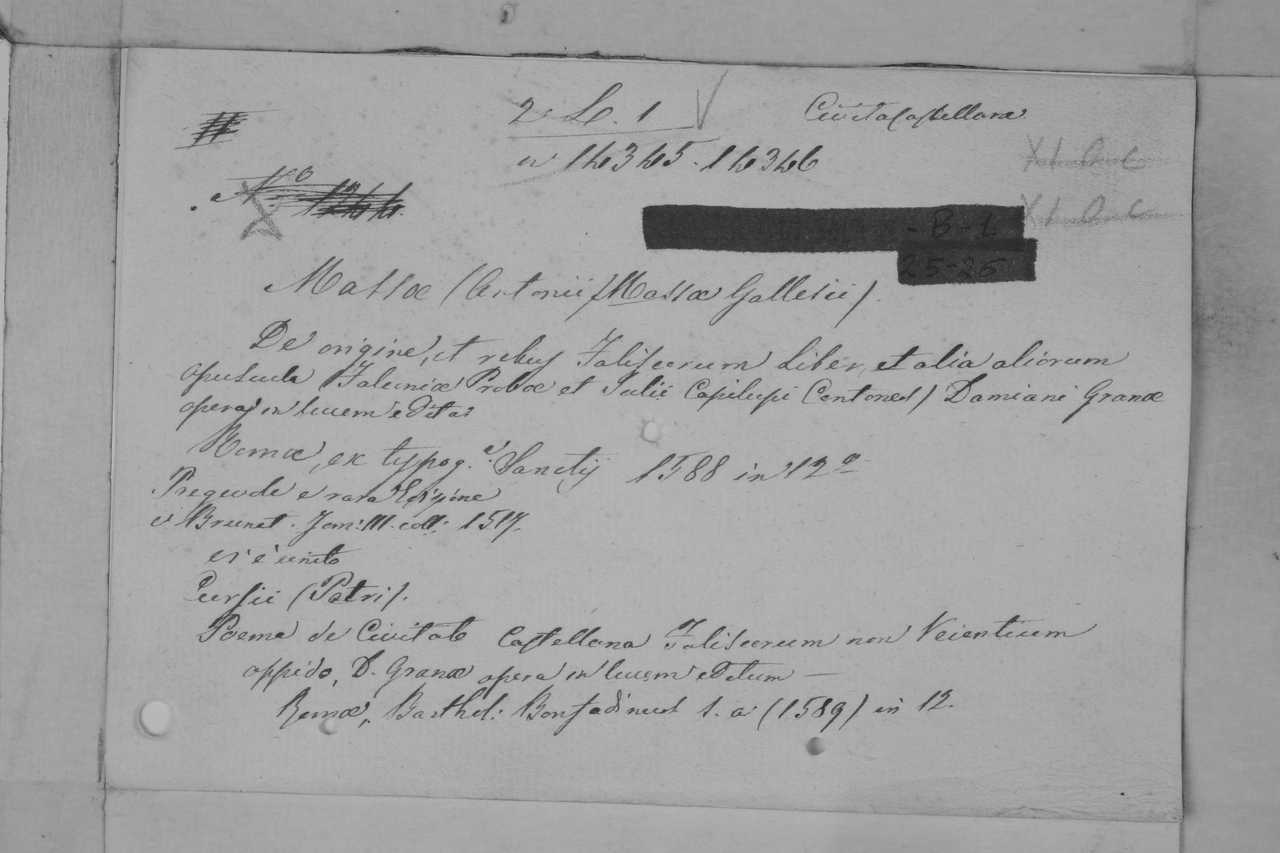 2 L. 1 Civita Castellana
n 14345-14346
XI A C
N.º 1244
XI A C
-B-L
25-26
Massæ (Antonii) Massæ Gallesii).
De origine, et rebus Faliscorum liber, et alia aliorum
opuscula Falconiæ Probæ et Julii Capilupi Centones) Damiani Granæ
opera in lucem edita
Romæ, ex typog.ª Sanctij 1588 in 12º
Pregevole e rara Edizione
v. Brunet. Tom: III. coll: 1517.
Vi è unito
Cursii (Petri).
Poema de Civitate Castellana Faliscorum non Veientium
oppido, D. Granæ opera in lucem editum —
Romæ, Barthol: Bonfadinus s. a. (1589) in 12.